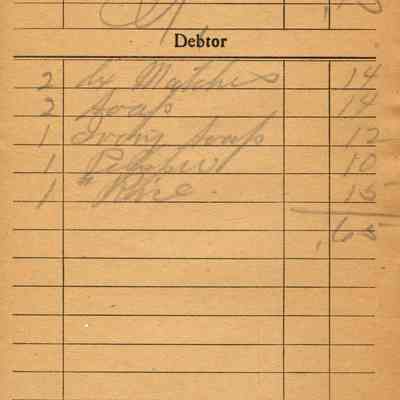 Debtor
2 bx Matches 14
2 Soap 14
1 Ivory Soap 12
1 Pepper 10
1 " Rice 15
.65